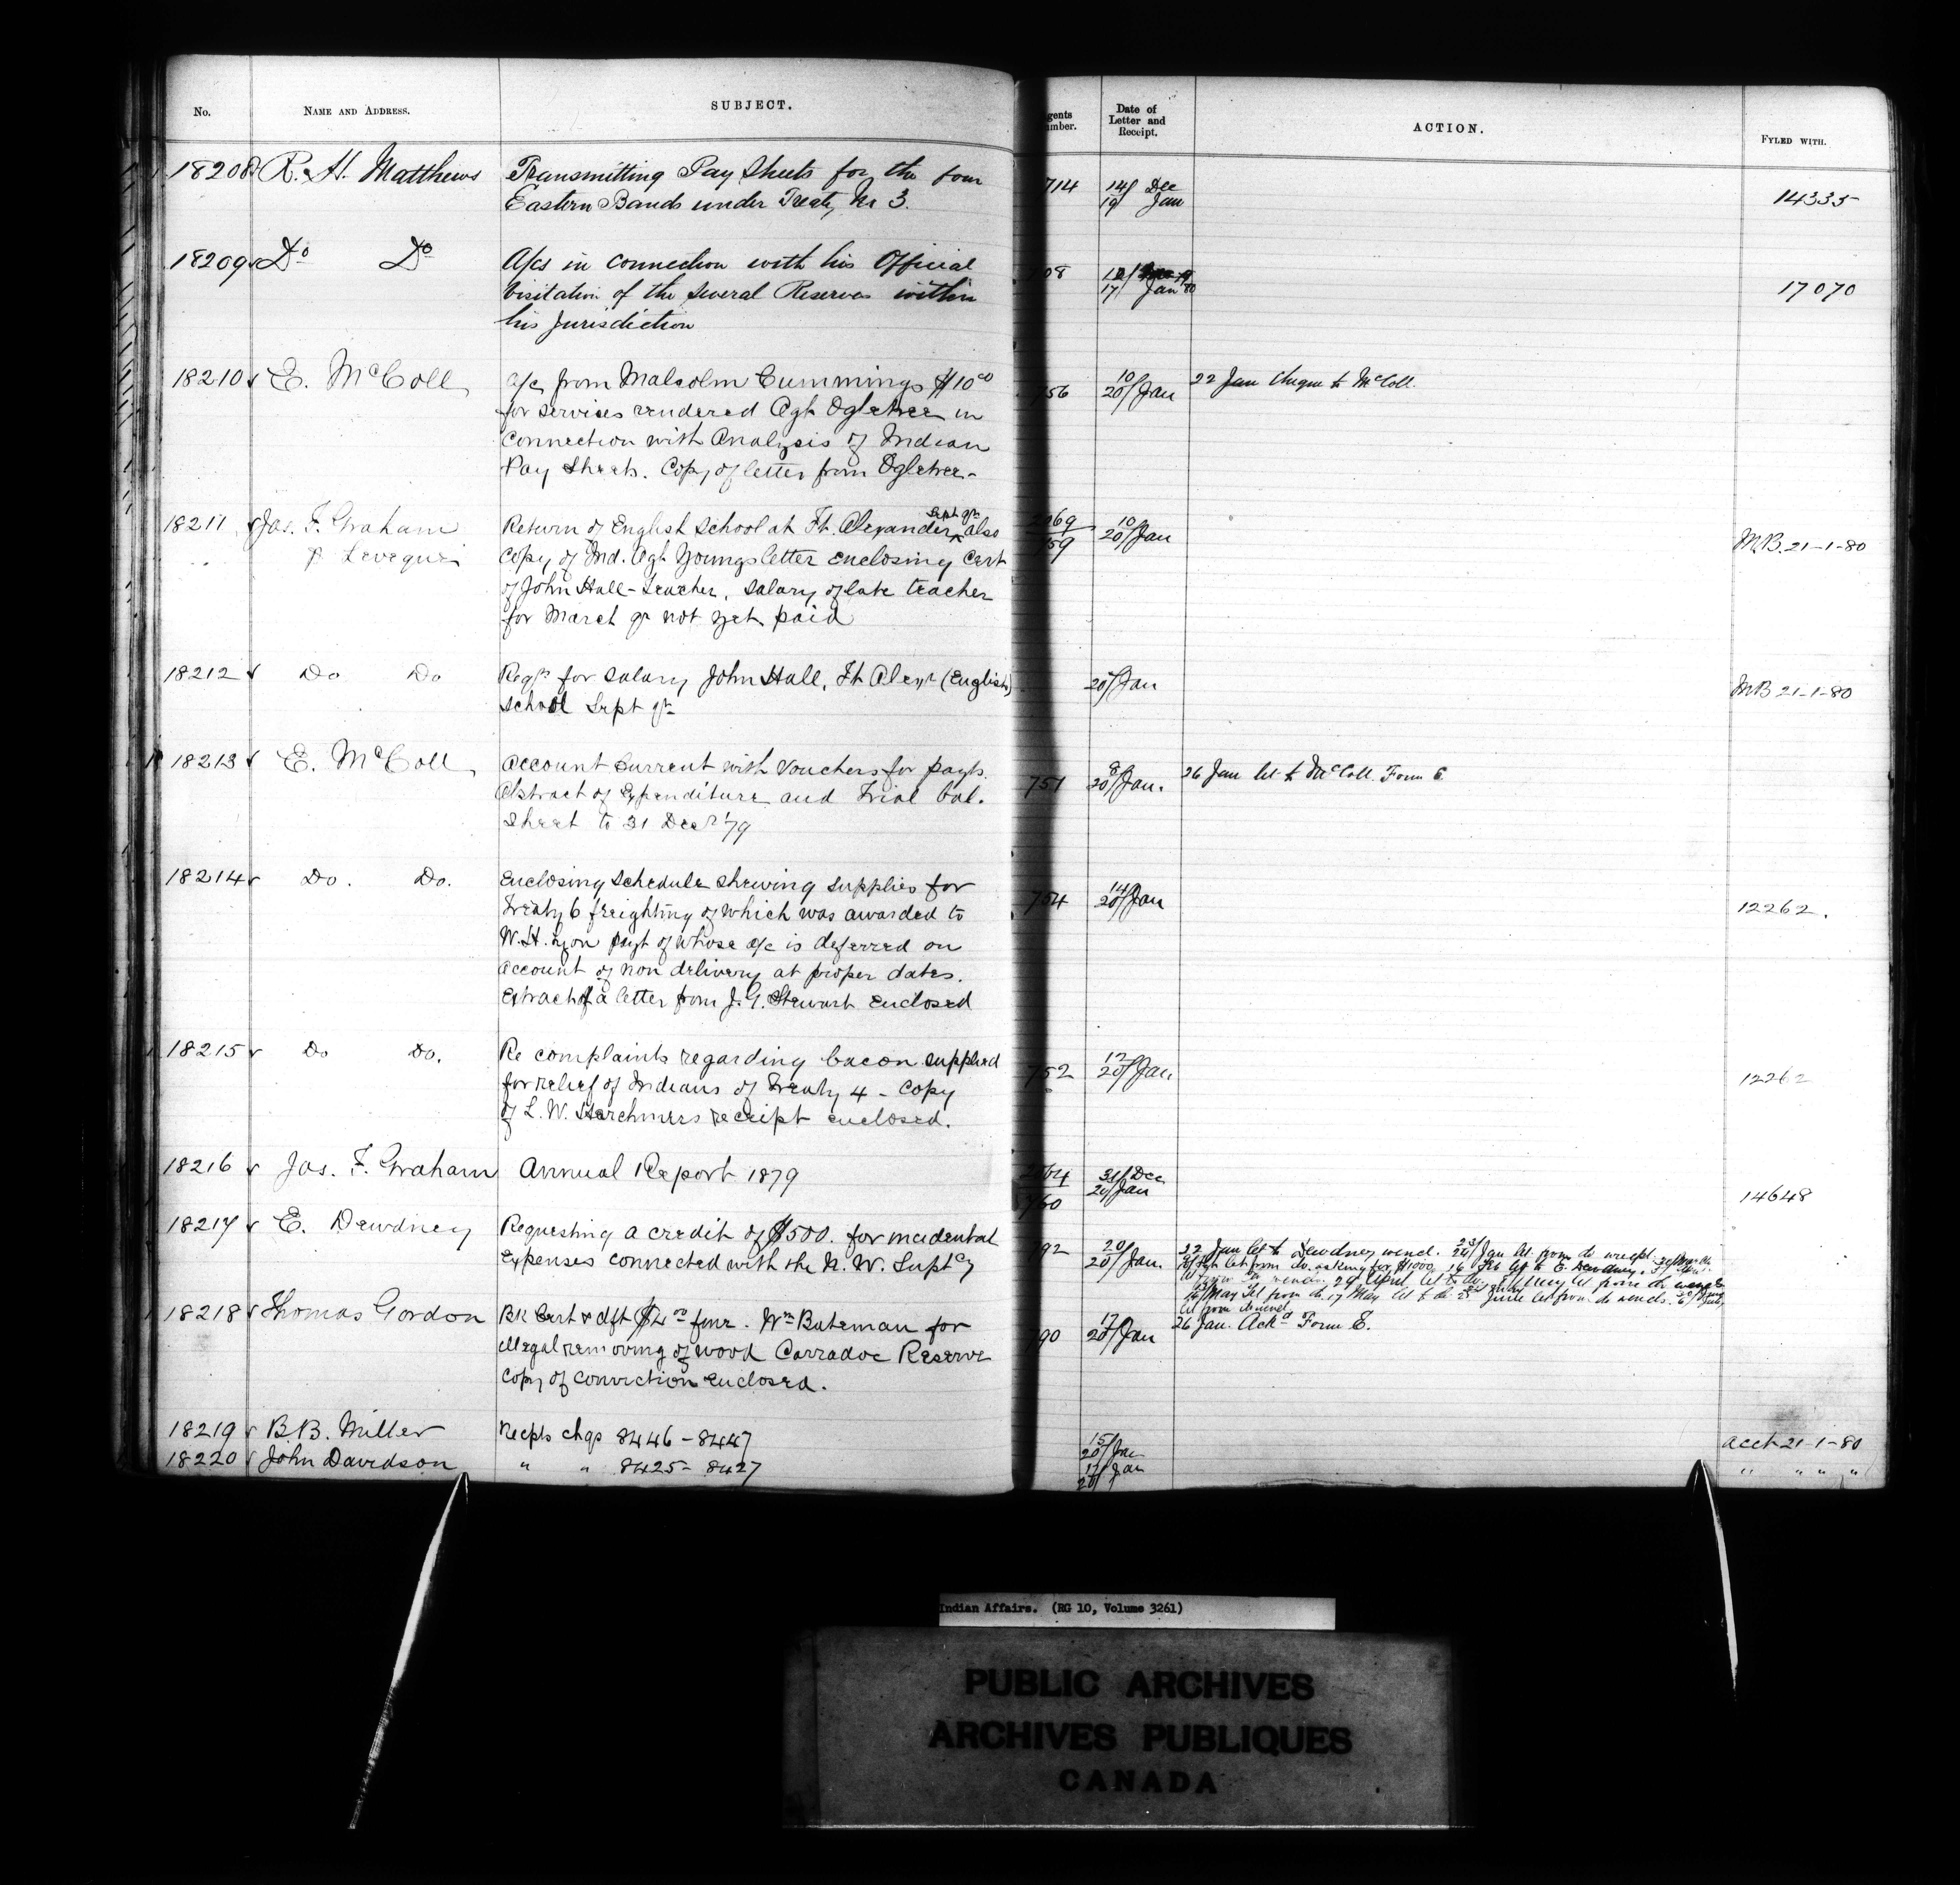 No. NAME AND ADDRESS. SUBJECT. gents umber. Date of Letter and Receipt. ACTION. FYLED WITH.
18208 R. H. Matthews Transmitting Pay Sheets for the four 714 14/ Dec
Eastern Bands under Treaty No 3. 19/ Jan 14335
18209 Do Do A/cs in connection with his Official 08 12/
visitation of the several Reserves within 17/ Jan 80 17070
his Jurisdiction
18210 E. McColl a/c from Malcolm Cummings $10.00 756 10/20 Jan 22 Jan cheque to McColl.
for services rendered Agt Ogletree in
connection with Analysis of Indian
Pay Sheets. Copy of letter from Ogletree-
18211 Jas. F. Graham Return of English School at Ft. Alexander Sept qr also 2069 10/20 Jan
p Leveque copy of Ind. Agt Youngs letter enclosing Cert 759 M.B. 21-1-80
of John Hall-Teacher, Salary of late teacher
for March qr not yet paid
18212 Do Do Reqn for salary John Hall, Ft Alexr (English) 20/Jan MB 21-1-80
School Sept qr
18213 E. McColl Account Current with Vouchers for payts. 751 8/20 Jan. 26 Jan let to McColl Form E
Abstract of Expenditure and Trial bal.
Sheet to 31 Decr '79
18214 Do. Do. Enclosing Schedule shewing supplies for 754 14/20 Jan
Treaty 6 freighting of which was awarded to 12262.
W. H. Lyon payt of whose a/c is deferred on
account of non delivery at proper dates.
Extract of a letter from J. G. Stewart enclosed
18215 Do Do. Re complaints regarding bacon supplied 752 12/20 Jan.
for relief of Indians of Treaty 4 - Copy 12262
of L. W. Herchmers receipt enclosed.
18216 Jas. F. Graham Annual Report 1879 2064 31/Dec
760 20/Jan 14648
18217 E. Dewdney Requesting a credit of $500. for incidental 92 20/20 Jan. 22 Jan let to Dewdney wencl. 23/24 Jan let. from do wrecpt.
Expenses connected with the N. W. Suptcy let from do. asking for $1000 16 Feb let to E. Dewdney.
29 April let to do. May let from do
May Tel from do 17 May let to do June let from do wencls.
let from do wencl
18218 Thomas Gordon Bk Cert & dft $4.00 fine. Wm Bateman for 90 17/20 Jan 26 Jan. Ackd Form E.
illegal removing of wood Carradoc Reserve
Copy of conviction enclosed.
18219 B.B. Miller Recpts chqs 8446-8447 15/20 Jan acct 21-1-80
18220 John Davidson " " 8425-8427 17/20 Jan " " " "
Indian Affairs. (RG 10, Volume 3261)
PUBLIC ARCHIVES
ARCHIVES PUBLIQUES
CANADA